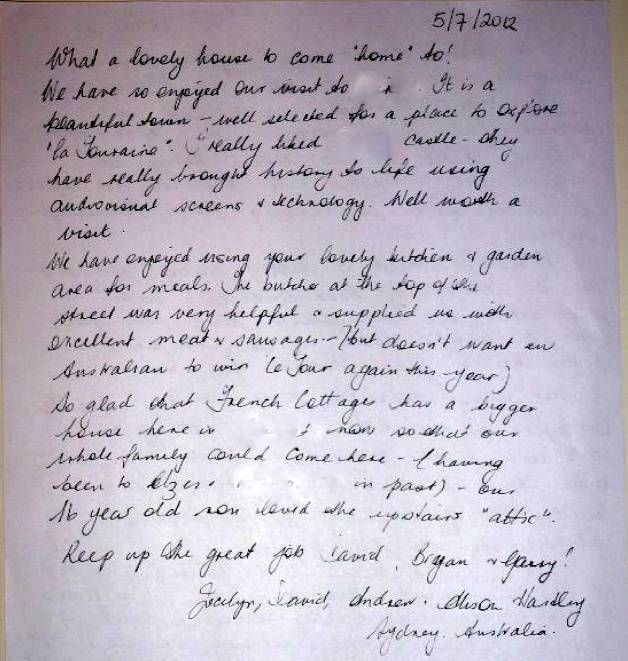 5/7/2012
What a lovely house to come "home" to!
We have so enjoyed our visit to . It is a
beautiful town - well selected for a place to explore
"la Touraine". I really liked castle - they
have really brought history to life using
audiovisual screens & technology. Well worth a
visit.
We have enjoyed using your lovely kitchen & garden
area for meals. The butcher at the top of the
street was very helpful & supplied us with
excellent meat & sausages - (but doesn't want an
Australian to win le Tour again this year)
So glad that French Cottages has a bigger
house here in now so that our
whole family could come here - (having
been to in past) - our
16 year old son loved the upstairs "attic".
Keep up the great job David, Bryan & Gerry!
Jocelyn, David, Andrew, Alison
Sydney. Australia.